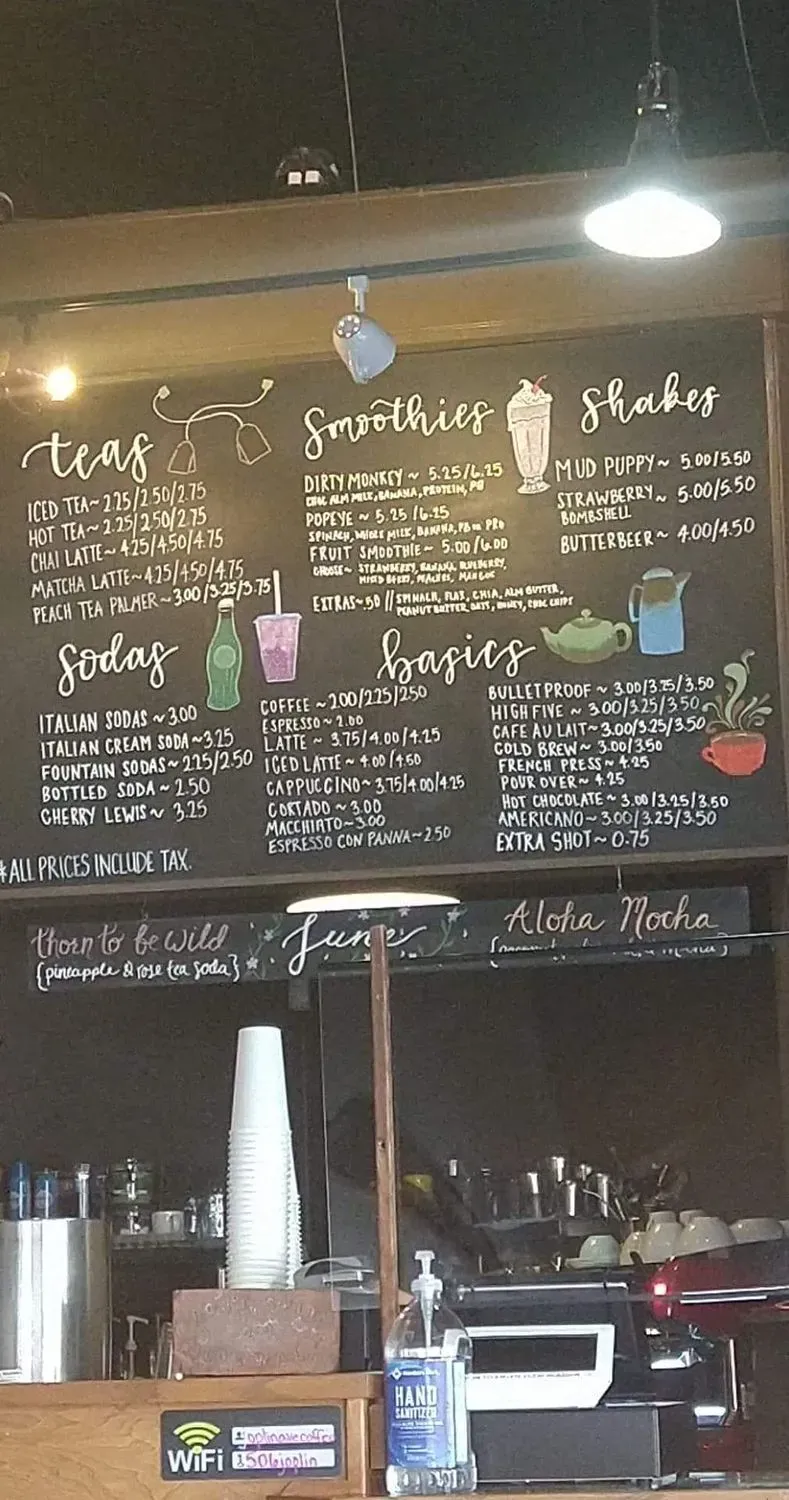 teas
ICED TEA~2.25/2.50/2.75
HOT TEA~2.25/2.50/2.75
CHAI LATTE~4.25/4.50/4.75
MATCHA LATTE~4.25/4.50/4.75
PEACH TEA PALMER~3.00/3.25/3.75
Smoothies
DIRTY MONKEY ~ 5.25/6.25
CHOC ALM MILK, BANANA, PROTEIN, PB
POPEYE ~ 5.25/6.25
SPINACH, WHOLE MILK, BANANA, PB OR PRO
FRUIT SMOOTHIE~ 5.00/6.00
CHOOSE~ STRAWBERRY, BANANA, BLUEBERRY,
MIXED BERRY, PEACHES, MANGOS
EXTRAS~.50 // SPINACH, FLAX, CHIA, ALM BUTTER,
PEANUT BUTTER, OATS, HONEY, CHOC CHIPS
Shakes
MUD PUPPY~ 5.00/5.50
STRAWBERRY~ 5.00/5.50
BOMBSHELL
BUTTERBEER~ 4.00/4.50
Sodas
ITALIAN SODAS ~3.00
ITALIAN CREAM SODA~3.25
FOUNTAIN SODAS~2.25/2.50
BOTTLED SODA~2.50
CHERRY LEWIS~ 3.25
basics
COFFEE ~2.00/2.25/2.50
ESPRESSO~2.00
LATTE ~ 3.75/4.00/4.25
ICED LATTE~4.00/4.50
CAPPUCCINO~3.75/4.00/4.25
CORTADO ~3.00
MACCHIATO~3.00
ESPRESSO CON PANNA~2.50
BULLETPROOF ~ 3.00/3.25/3.50
HIGH FIVE ~ 3.00/3.25/3.50
CAFE AU LAIT~3.00/3.25/3.50
COLD BREW~ 3.00/3.50
FRENCH PRESS~4.25
POUR OVER~4.25
HOT CHOCOLATE~3.00/3.25/3.50
AMERICANO~3.00/3.25/3.50
EXTRA SHOT~0.75
*ALL PRICES INCLUDE TAX.
thorn to be wild
{pineapple & rose tea soda}
June
Aloha Mocha
HAND
SANITIZER
WiFi
506joplin